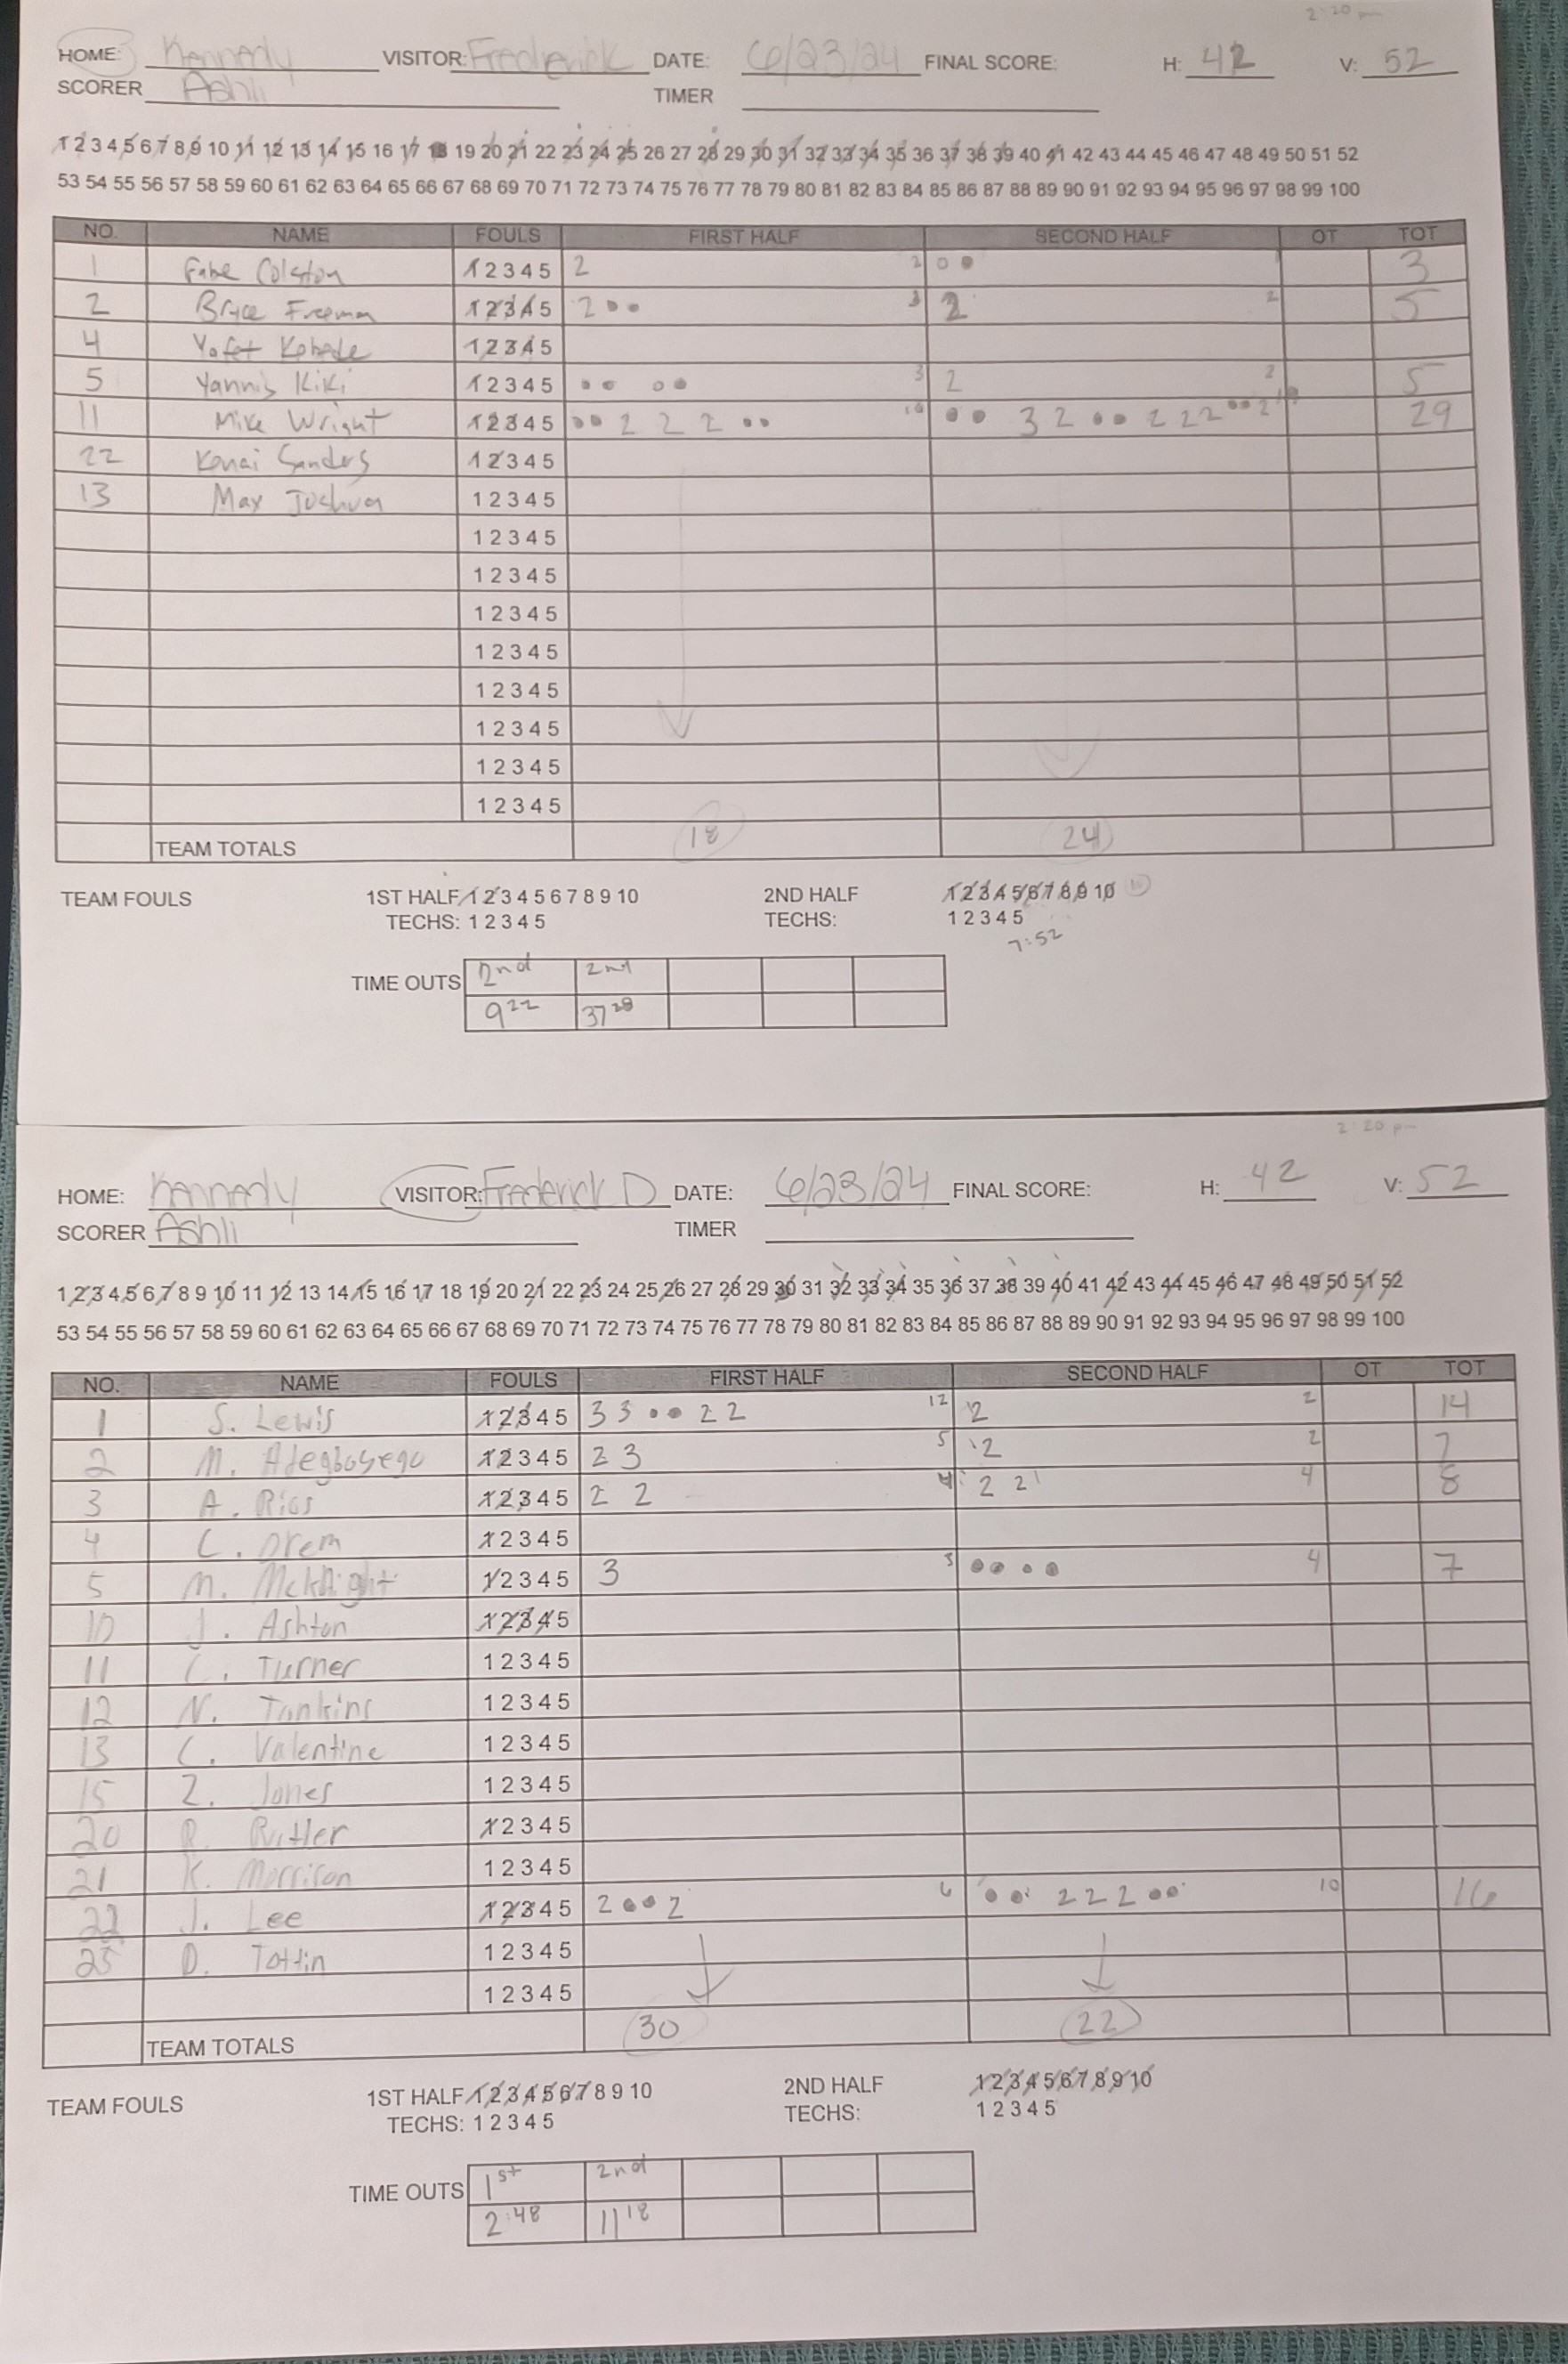 2:20 pm
HOME: Kennedy VISITOR: Frederick DATE: 6/23/24 FINAL SCORE: H: 42 V: 52
SCORER Ashli TIMER
1 2 3 4 5 6 7 8 9 10 11 12 13 14 15 16 17 18 19 20 21 22 23 24 25 26 27 28 29 30 31 32 33 34 35 36 37 38 39 40 41 42 43 44 45 46 47 48 49 50 51 52
53 54 55 56 57 58 59 60 61 62 63 64 65 66 67 68 69 70 71 72 73 74 75 76 77 78 79 80 81 82 83 84 85 86 87 88 89 90 91 92 93 94 95 96 97 98 99 100
NO. NAME FOULS FIRST HALF SECOND HALF OT TOT
1 Colston 1 2 3 4 5 2 2 1 3
2 Bryce Freeman 1 2 3 4 5 2 3 2 2 5
4 Yafet Kebede 1 2 3 4 5
5 Yannis Kiki 1 2 3 4 5 3 2 2 5
11 Mike Wright 1 2 3 4 5 2 2 2 10 3 2 2 2 2 2 19 29
22 Sanders 1 2 3 4 5
13 Max Joshua 1 2 3 4 5
1 2 3 4 5
1 2 3 4 5
1 2 3 4 5
1 2 3 4 5
1 2 3 4 5
1 2 3 4 5
1 2 3 4 5
1 2 3 4 5
TEAM TOTALS 18 24
TEAM FOULS 1ST HALF 1 2 3 4 5 6 7 8 9 10 2ND HALF 1 2 3 4 5 6 7 8 9 10 10
TECHS: 1 2 3 4 5 TECHS: 1 2 3 4 5
7:52
TIME OUTS 2nd 2nd
9 22 37 28
2:20 pm
HOME: Kennedy VISITOR: Frederick D DATE: 6/23/24 FINAL SCORE: H: 42 V: 52
SCORER Ashli TIMER
1 2 3 4 5 6 7 8 9 10 11 12 13 14 15 16 17 18 19 20 21 22 23 24 25 26 27 28 29 30 31 32 33 34 35 36 37 38 39 40 41 42 43 44 45 46 47 48 49 50 51 52
53 54 55 56 57 58 59 60 61 62 63 64 65 66 67 68 69 70 71 72 73 74 75 76 77 78 79 80 81 82 83 84 85 86 87 88 89 90 91 92 93 94 95 96 97 98 99 100
NO. NAME FOULS FIRST HALF SECOND HALF OT TOT
1 S. Lewis 1 2 3 4 5 3 3 2 2 12 2 2 14
2 M. Adegboyego 1 2 3 4 5 2 3 5 2 2 7
3 A. Rios 1 2 3 4 5 2 2 4 2 2 4 8
4 C. Drem 1 2 3 4 5
5 M. McKnight 1 2 3 4 5 3 3 4 7
10 J. Ashton 1 2 3 4 5
11 C. Turner 1 2 3 4 5
12 N. Tonkins 1 2 3 4 5
13 C. Valentine 1 2 3 4 5
15 Z. Jones 1 2 3 4 5
20 R. 1 2 3 4 5
21 K. Morrison 1 2 3 4 5
22 J. Lee 1 2 3 4 5 2 2 6 2 2 2 10 16
25 D. 1 2 3 4 5
1 2 3 4 5
TEAM TOTALS 30 22
TEAM FOULS 1ST HALF 1 2 3 4 5 6 7 8 9 10 2ND HALF 1 2 3 4 5 6 7 8 9 10
TECHS: 1 2 3 4 5 TECHS: 1 2 3 4 5
TIME OUTS 1st 2nd
2:48 11 18